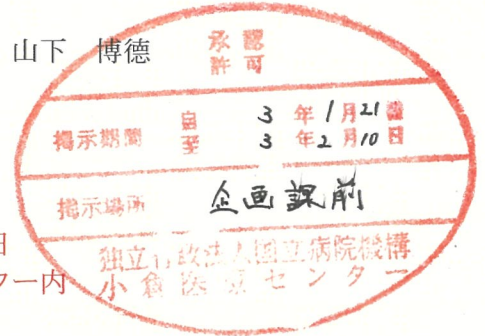 山下 博德
承認
許可
掲示期間
自 3 年 1 月 21 日
至 3 年 2 月 10 日
掲示場所 企画課前
日
独立行政法人国立病院機構
ター内
小倉医療センター